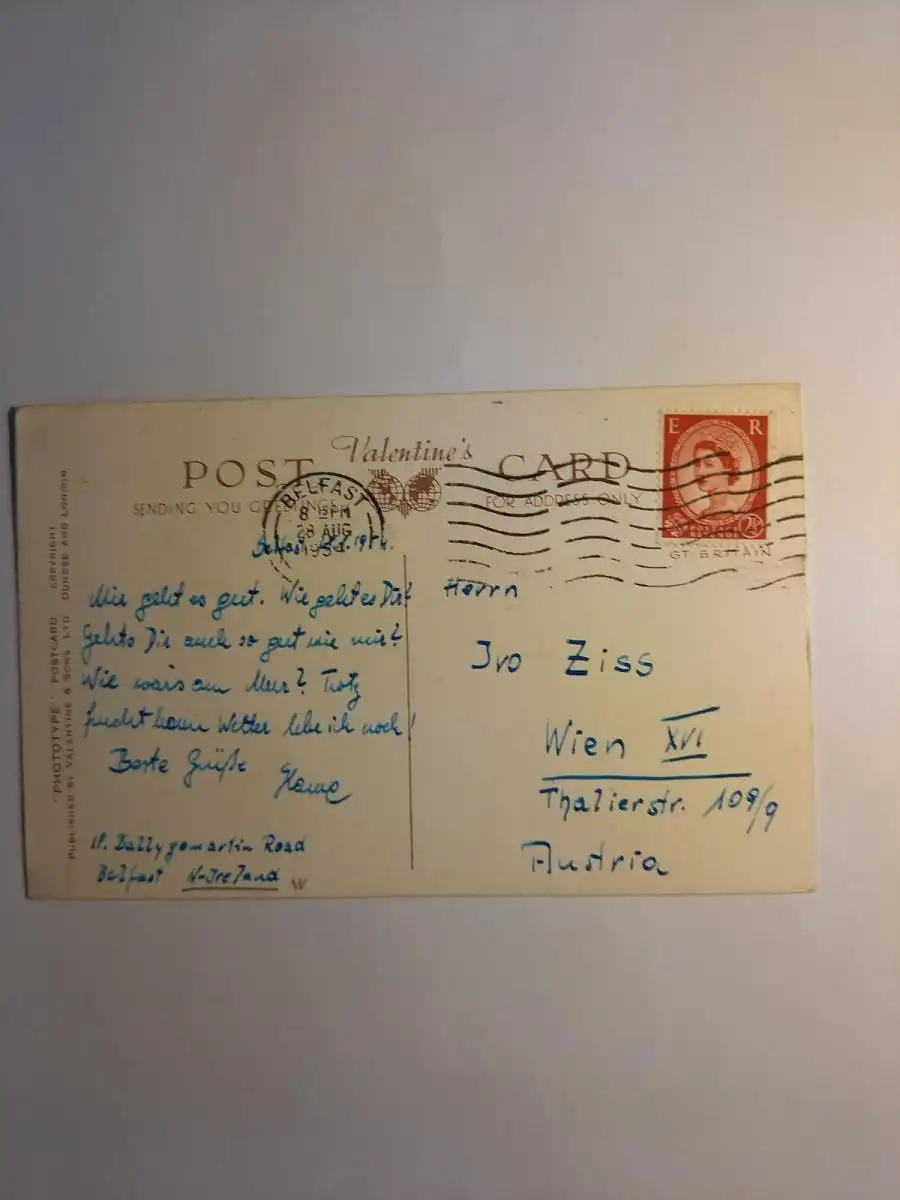 POST Valentine's CARD
SENDING YOU GREETINGS
FOR ADDRESS ONLY
E R
POSTAGE REVENUE
2½
GT BRITAIN
BELFAST
8 PM
28 AUG
1954
Belfast 1954.
Mir geht es gut. Wie geht es Dir?
Gehts Dir auch so gut wie mir?
Wie wars am Meer? Trotz
furchtbarem Wetter lebe ich noch!
Beste Grüße
Ballygomartin Road
Belfast N-Ireland
W
Herrn
Ivo Ziss
Wien XVI
Thalierstr. 109/9
Austria
"PHOTOTYPE" POSTCARD COPYRIGHT
PUBLISHED BY VALENTINE & SONS LTD DUNDEE AND LONDON